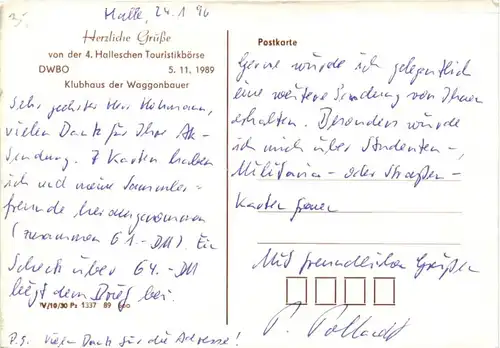 Halle, 24.1.96
Herzliche Grüße
von der 4. Halleschen Touristikbörse
DWBO 5. 11. 1989
Klubhaus der Waggonbauer
Sehr geehrter Herr Hohmann,
vielen Dank für Ihre An-
sendung. 7 Karten haben
ich und meine Sammler-
freunde herausgenommen
(zusammen 61.-DM). Ein
Scheck über 64.-DM
liegt dem Brief bei.
V/10/30 Ps 1337 89
P.S. Vielen Dank für die Adresse!
Postkarte
Gerne würde ich gelegentlich
eine weitere Sendung von Ihnen
erhalten. Besonders würde
ich mich über Studenten-,
Militaria- oder Straßen-
karten freuen
Mit freundlichen Grüßen